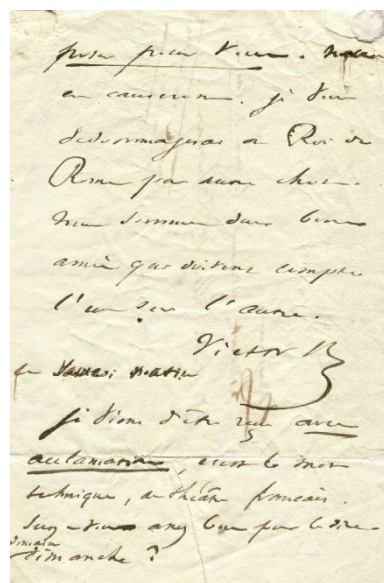 poser pour vous. nous
en causerons. je vous
dédommagerai du Roi de
Rome par autre chose.
nous sommes deux bons
amis qui doivent compter
l'un sur l'autre.
Victor H
ce samedi matin
je viens d'être reçu avec
acclamations, c'est le mot
technique, au théâtre français.
Serez-vous assez bon pour le dire
demain
dimanche ?